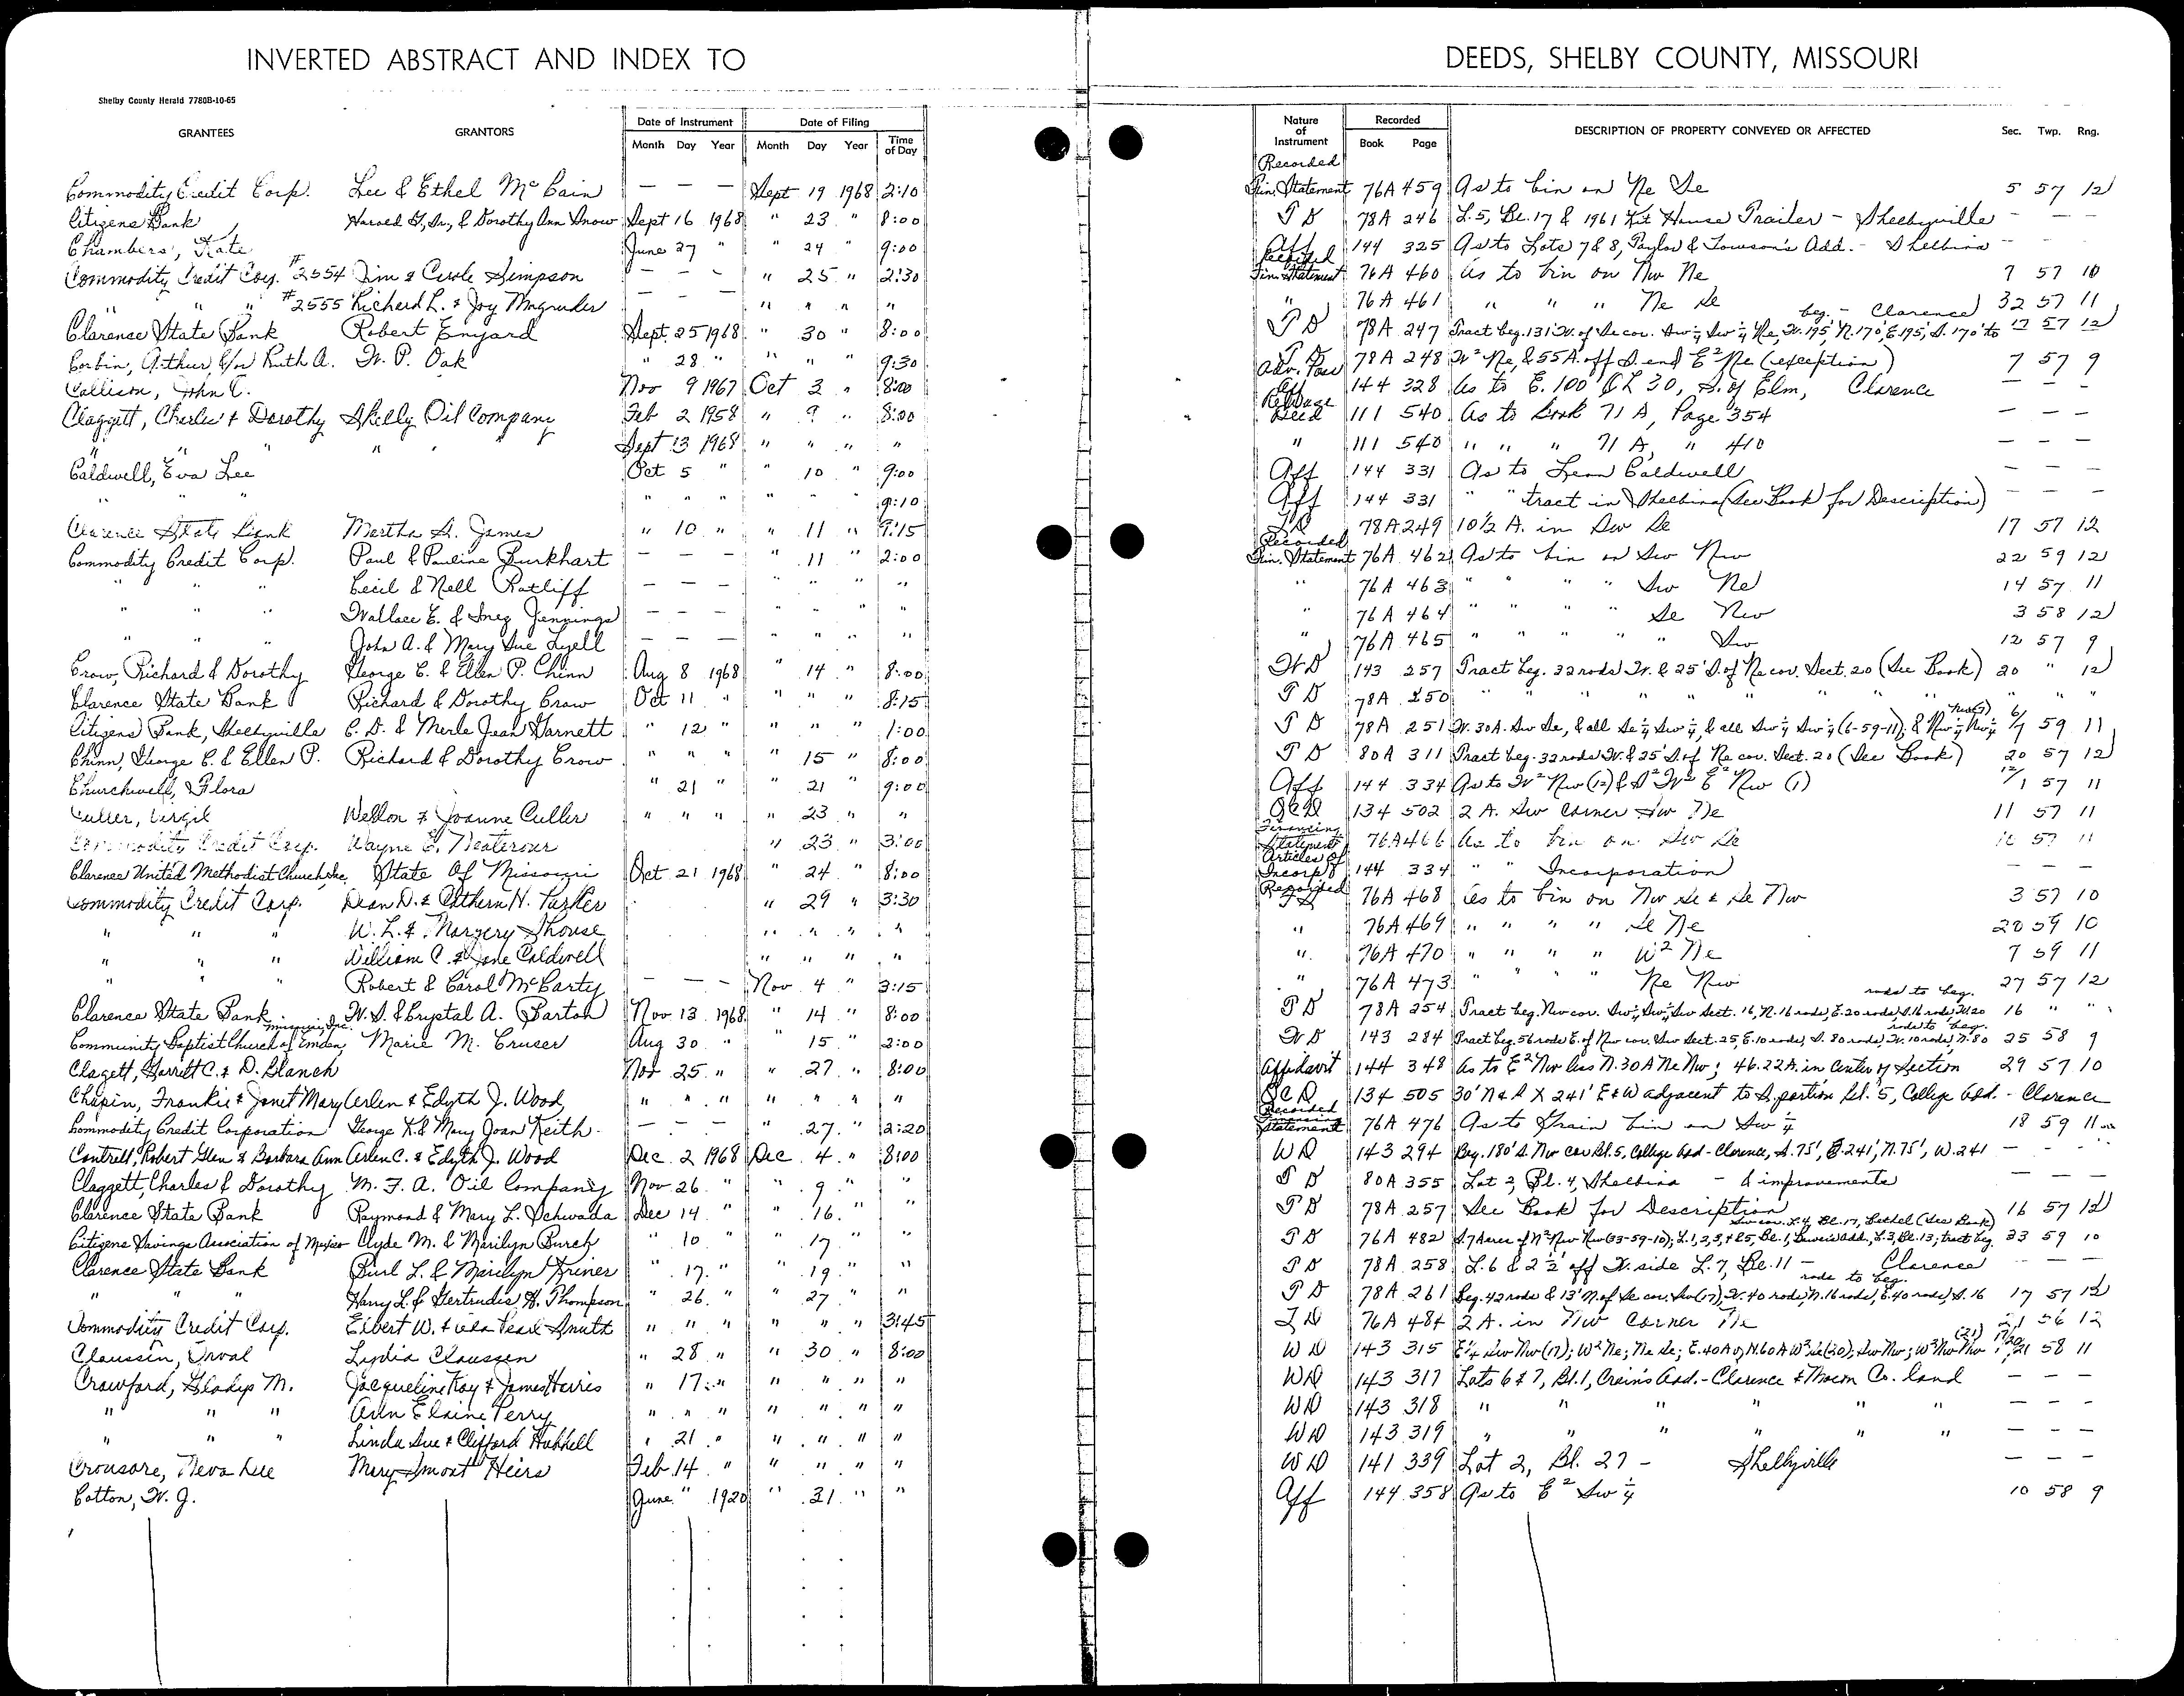 INVERTED ABSTRACT AND INDEX TO DEEDS, SHELBY COUNTY, MISSOURI
Shelby County Herald 7780B-10-65
GRANTEES GRANTORS Date of Instrument Date of Filing Nature of Instrument Recorded DESCRIPTION OF PROPERTY CONVEYED OR AFFECTED Sec. Twp. Rng.
Month Day Year Month Day Year Time of Day Book Page
Recorded
Commodity Credit Corp. Lee & Ethel McCain — — — Sept 19 1968 2:10 Fin. Statement 76A 459 As to bin on Ne Se 5 57 12
Citizens Bank Harold G., Sr., & Dorothy Ann Snow Sept 16 1968 " 23 " 8:00 T D 78A 246 L. 5, Bl. 17 & 1961 Kit House Trailer - Shelbyville — — —
Chambers, Kate June 27 " " 24 " 9:00 Aff 144 325 As to Lots 7 & 8, Taylor & Towson's Add. - Shelbina — — —
Commodity Credit Corp. #2554 Jim & Carole Simpson — — — " 25 " 2:30 Recorded Fin. Statement 76A 460 As to bin on Nw Ne 7 57 10
" " " #2555 Richard L. & Joy Magruder — — — " " " " " 76A 461 " " " Ne Se 32 57 11
Clarence State Bank Robert Enyard Sept 25 1968 " 30 " 8:00 T D 78A 247 Tract beg. 131' W. of Se cor. Sw¼ Sw¼ Ne, W. 195', N. 170', E. 195', S. 170' to beg. - Clarence 17 57 12
Corbin, Arthur, &/or Ruth A. W. P. Oak " 28 " " " " 9:30 T D 78A 248 W² Ne, & 55A. off S. end E² Ne (exception) 7 57 9
Collison, John C. Nov 9 1967 Oct 3 " 8:00 Aff 144 328 As to E. 100' of L 30, S. of Elm, Clarence — — —
Claggett, Charles & Dorothy Skelly Oil Company Feb 2 1958 " 9 " 8:00 Release Deed 111 540 As to Book 71 A, Page 354 — — —
" " Sept 13 1968 " " " " " 111 540 " " " 71 A, " 410 — — —
Caldwell, Eva Lee Oct 5 " " 10 " 9:00 Aff 144 331 As to Leon Caldwell — — —
" " " " " " " " 9:10 Aff 144 331 " " tract in Shelbina (See Book) for Description) — — —
Clarence State Bank Martha S. James " 10 " " 11 " 9:15 T D 78A 249 10½ A. in Sw Se 17 57 12
Commodity Credit Corp. Paul & Pauline Burkhart — — — " 11 " 2:00 Recorded Fin. Statement 76A 462 As to bin on Sw Nw 22 59 12
" " " Cecil & Nell Ratliff — — — " " " " " 76A 463 " " " " Sw Ne 14 57 11
" " " Wallace E. & Inez Jennings — — — " " " " " 76A 464 " " " " Se Nw 3 58 12
" " " John A. & Mary Sue Lyell — — — " " " " " 76A 465 " " " " " Sw 12 57 9
Crow, Richard & Dorothy George C. & Ellen P. Chinn Aug 8 1968 " 14 " 8:00 W D 143 257 Tract beg. 32 rods W. & 25' S. of Ne cor. Sect. 20 (See Book) 20 " 12
Clarence State Bank Richard & Dorothy Crow Oct 11 " " " " 8:15 T D 78A 250 " " " " " " " " "
Citizens Bank, Shelbyville C. D. & Merle Jean Garnett " 12 " " " " 1:00 T D 78A 251 W. 30A. Sw Se, & all Se¼ Sw¼, & all Sw¼ Sw¼ (6-59-11); & Nw¼ Nw¼ 6/7 59 11
Chinn, George C. & Ellen P. Richard & Dorothy Crow " " " " 15 " 8:00 T D 80A 311 Tract beg. 32 rods W. & 25' S. of Ne cor. Sect. 20 (See Book) 20 57 12
Churchwell, Flora " 21 " " 21 " 9:00 Aff 144 334 As to W² Nw (12) & S² W² E² Nw (1) 12/1 57 11
Culler, Virgil Weldon & Joanne Culler " " " " 23 " " QCD 134 502 2 A. Sw Corner Sw Ne 11 57 11
Commodity Credit Corp. Wayne E. " 23 " 3:00 Financing Statement 76A 466 As to bin on Sw Se 57 11
Clarence United Methodist Church State Of Missouri Oct 21 1968 " 24 " 8:00 Articles Of Incorp'd 144 334 " " Incorporation — — —
Commodity Credit Corp. Dean D. & Cathern H. Parker " 29 " 3:30 Recorded 76A 468 As to bin on Nw Se & Se Nw 3 57 10
" " " W. L. & Margery Shouse " " " " " 76A 469 " " " " Se Ne 28 59 10
" " " William C. & Jane Caldwell " " " " " 76A 470 " " " " W² Ne 7 59 11
" " " Robert & Carol McCarty — — — Nov 4 " 3:15 " 76A 473 " " " " Ne Nw 27 57 12
Clarence State Bank W. S. & Crystal A. Barton Nov 13 1968 " 14 " 8:00 T D 78A 254 Tract beg. Nw cor. Sw¼, Sw¼, Sw Sect. 16, N. 16 rods, E. 20 rods, S. 16 rods, W. 20 rods to beg. 16 " "
Community Baptist Church of Emden, Missouri, Inc. Marie M. Cruser Aug 30 " " 15 " 2:00 W D 143 284 Tract beg. 56 rods E. of Nw cor. Sw Sect. 25, E. 10 rods, S. 80 rods, W. 10 rods, N. 80 rods to beg. 25 58 9
Clagett, Garrett C. & D. Blanch Nov 25 " " 27 " 8:00 Affidavit 144 348 As to E² Nw less N. 30A Ne Nw; 46.22A. in center of Section 29 57 10
Chapin, Frankie & Janet Mary Arlen & Edyth J. Wood " " " " " " " QCD 134 505 30' N & S X 241' E & W adjacent to S. portion Bl. 5, College Add. - Clarence
Commodity Credit Corporation George K. & Mary Joan Keith — — — " 27 " 2:20 Recorded Financing Statement 76A 476 As to Grain bin on Sw¼ 18 59 11
Cantrell, Robert Glen & Barbara Ann Arlen C. & Edyth J. Wood Dec. 2 1968 Dec. 4 " 8:00 W D 143 294 Beg. 180' S. Nw cor Bl. 5, College Add - Clarence, S. 75', E. 241', N. 75', W. 241 — — —
Claggett, Charles & Dorothy M. F. A. Oil Company Nov 26 " " 9 " " T D 80A 355 Lot 2, Bl. 4, Shelbina - & improvements — — —
Clarence State Bank Raymond & Mary L. Schwada Dec 14 " " 16 " " T D 78A 257 See Book for Description 16 57 12
Citizens Savings Association of Clyde M. & Marilyn Burch " 10 " " 17 " " T D 76A 482 S. 7 Acres of N² Nw Nw (33-59-10); L. 1, 2, 3, 4 & 5, Bl. 1, add., L. 3, Bl. 13; tract beg. Sw cor. L. 4, Bl. 17, Bethel (See Book) 33 59 10
Clarence State Bank Burl L. & Marilyn Kriner " 17 " " 19 " " T D 78A 258 L. 6 & 2½' off W. side L. 7, Bl. 11 - Clarence — — —
" " " Harry L. & Gertrudis H. Thompson " 26 " " 27 " " T D 78A 261 Beg. 42 rods & 13' N. of Se cor. Sw (17), W. 40 rods, N. 16 rods, E. 40 rods, S. 16 rods to beg. 17 57 12
Commodity Credit Corp. Elbert W. & Pearl Smith " " " " " " 3:45 76A 484 2 A. in Nw Corner Ne 21 56 12
Claussen, Orval Lydia Claussen " 28 " " 30 " 8:00 W D 143 315 E¼ Sw Nw (17); W² Ne; Ne Se; E. 40A of N. 60A W² Se (20); Sw Nw; W² Nw Nw (21) 17/20/21 58 11
Crawford, Gladys M. Jacqueline Kay & James Harris " 17 " " " " " W D 143 317 Lots 6 & 7, Bl. 1, Crain's Add. - Clarence & Macon Co. land — — —
" " " Ann Elaine Perry " " " " " " " W D 143 318 " " " " " " — — —
" " " Linda Sue & Clifford Hubbell " 21 " " " " " W D 143 319 " " " " " " — — —
Crousore, Neva Sue Mary Heirs Feb 14 " " " " " W D 141 339 Lot 2, Bl. 27 - Shelbyville — — —
Cotton, W. J. June " 1920 " 31 " " Aff 144 358 As to E² Sw¼ 10 58 9